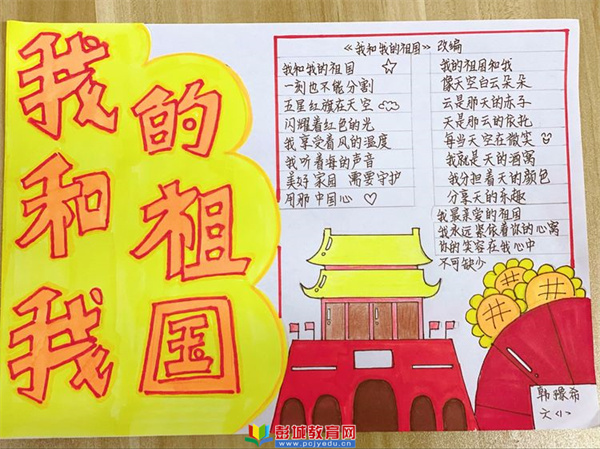 我和我
的祖国
《我和我的祖国》改编
我和我的祖国
一刻也不能分割
五星红旗在天空
闪耀着红色的光
我享受着风的温度
我听着海的声音
美好家园 需要守护
用那中国心
我的祖国和我
像天空白云朵朵
云是那天的赤子
天是那云的依托
每当天空在微笑
我就是天的酒窝
我分担着天的颜色
分享天的乐趣
我最亲爱的祖国
我永远紧依着你的心窝
你的笑容在我心中
不可缺少
韩豫希
六(1)
彭城教育网
www.pcjyedu.cn